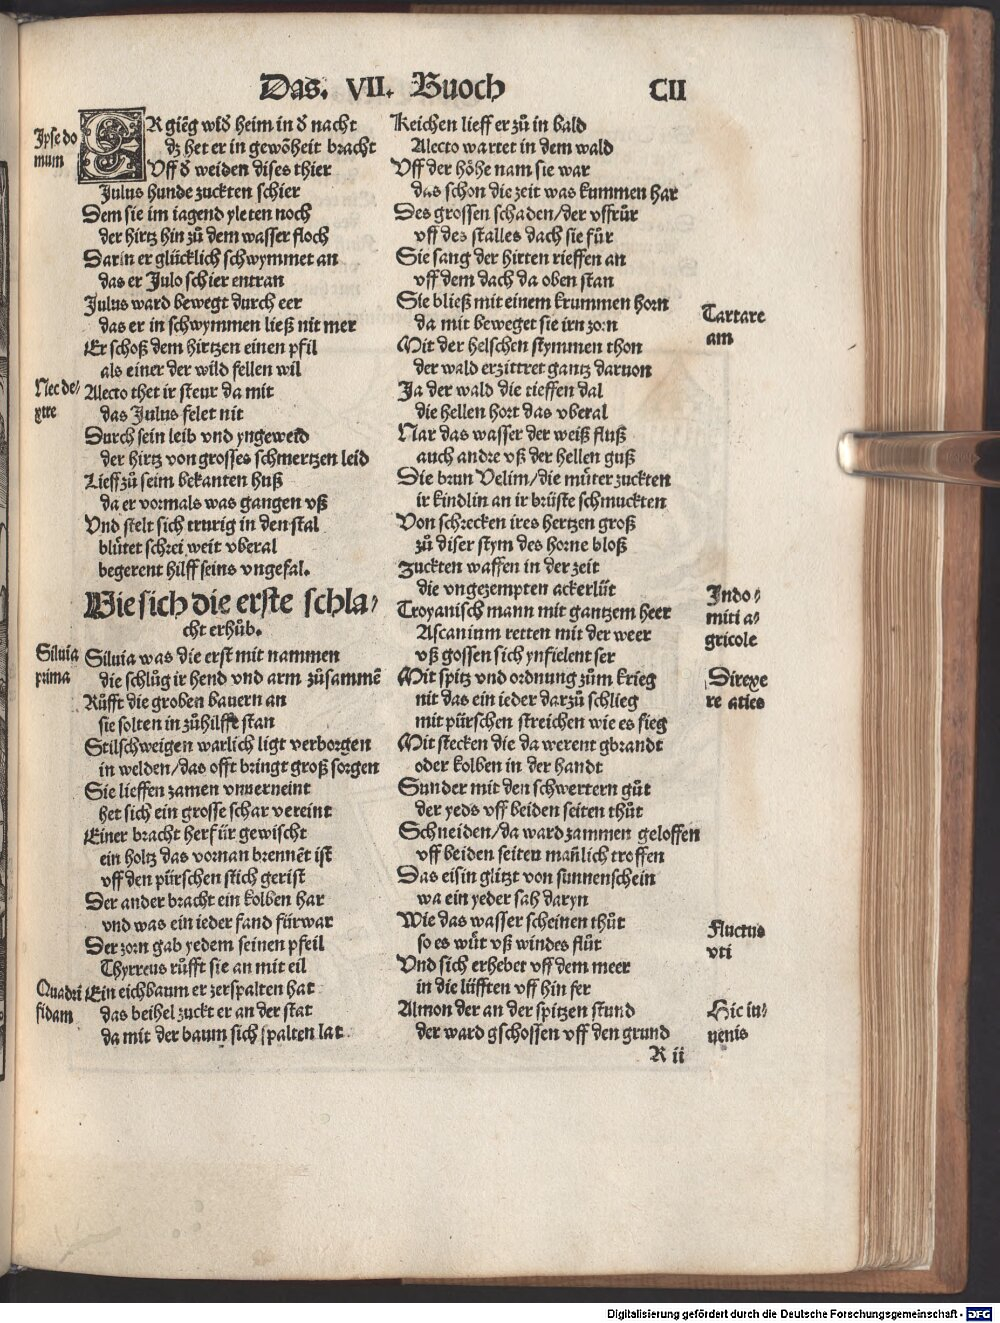 Das. VII. Buoch CII
Ipse do
mum
ER giēg wid̄ heim in d̄ nacht
dz het er in gewōheit bracht
Vff d̄ weiden dises thier
Julus hunde zuckten schier
Dem sie im iagend yleten noch
der hirtz hin zů dem wasser floch
Darin er glücklich schwymmet an
das er Julo schier entran
Julus ward bewegt durch eer
das er in schwymmen ließ nit mer
Er schoß dem hirtzen einen pfil
als einer der wild fellen wil
Nec de⸗
xtre
Alecto thet ir steur da mit
das Julus felet nit
Durch sein leib vnd yngeweid
der hirtz von grosses schmertzen leid
Lieff zů seim bekanten huß
da er vormals was gangen vß
Vnd stelt sich trurig in den stal
blůtet schrei weit vberal
begerent hilff seins vngefal.
Wie sich die erste schla⸗
cht erhůb.
Siluia
prima
Siluia was die erst mit nammen
die schlůg ir hend vnd arm zůsammē
Růfft die groben bauern an
sie solten in zůhilfft stan
Stilschweigen warlich ligt verborgen
in welden/das offt bringt groß sorgen
Sie lieffen zamen vnuerneint
het sich ein grosse schar vereint
Einer bracht herfür gewischt
ein holtz das vornan brennēt ist
vff den pürschen stich gerist
Der ander bracht ein kolben har
vnd was ein ieder fand fürwar
Der zorn gab yedem seinen pfeil
Thyrreus růfft sie an mit eil
Quadri
fidam
Ein eichbaum er zerspalten hat
das beihel zuckt er an der stat
da mit der baum sich spalten lat
Keichen lieff er zů in bald
Alecto wartet in dem wald
Vff der höhe nam sie war
das schon die zeit was kummen har
Des grossen schaden/der vffrůr
vff des stalles dach sie fůr
Sie sang der hirten rieffen an
vff dem dach da oben stan
Sie bließ mit einem krummen horn
da mit beweget sie irn zorn
Tartare
am
Mit der helschen stymmen thon
der wald erzittret gantz daruon
Ja der wald die tieffen dal
die hellen hort das vberal
Nar das wasser der weiß fluß
auch andre vß der hellen guß
Die brun Velim/die můter zuckten
ir kindlin an ir brüste schmuckten
Von schrecken ires hertzen groß
zů diser stym des horne bloß
Zuckten waffen in der zeit
die vngezempten ackerlüt
Indo⸗
miti a⸗
gricole
Troyanisch mann mit gantzem heer
Ascanium retten mit der weer
vß gossen sich ynfielent ser
Direxe
re aties
Mit spitz vnd ordnung zům krieg
nit das ein ieder darzů schlieg
mit pürschen streichen wie es fieg
Mit stecken die da werent gbrandt
oder kolben in der handt
Sunder mit den schwertern gůt
der yeds vff beiden seiten thůt
Schneiden/da ward zammen geloffen
vff beiden seiten man̄lich troffen
Das eisin glitzt von sunnenschein
wa ein yeder sah daryn
Fluctus
vti
Wie das wasser scheinen thůt
so es wůt vß windes flůt
Vnd sich erhebet vff dem meer
in die lüfften vff hin fer
Hic iu⸗
uenis
Almon der an der spitzen stund
der ward gschossen vff den grund
R ii
Digitalisierung gefördert durch die Deutsche Forschungsgemeinschaft - DFG